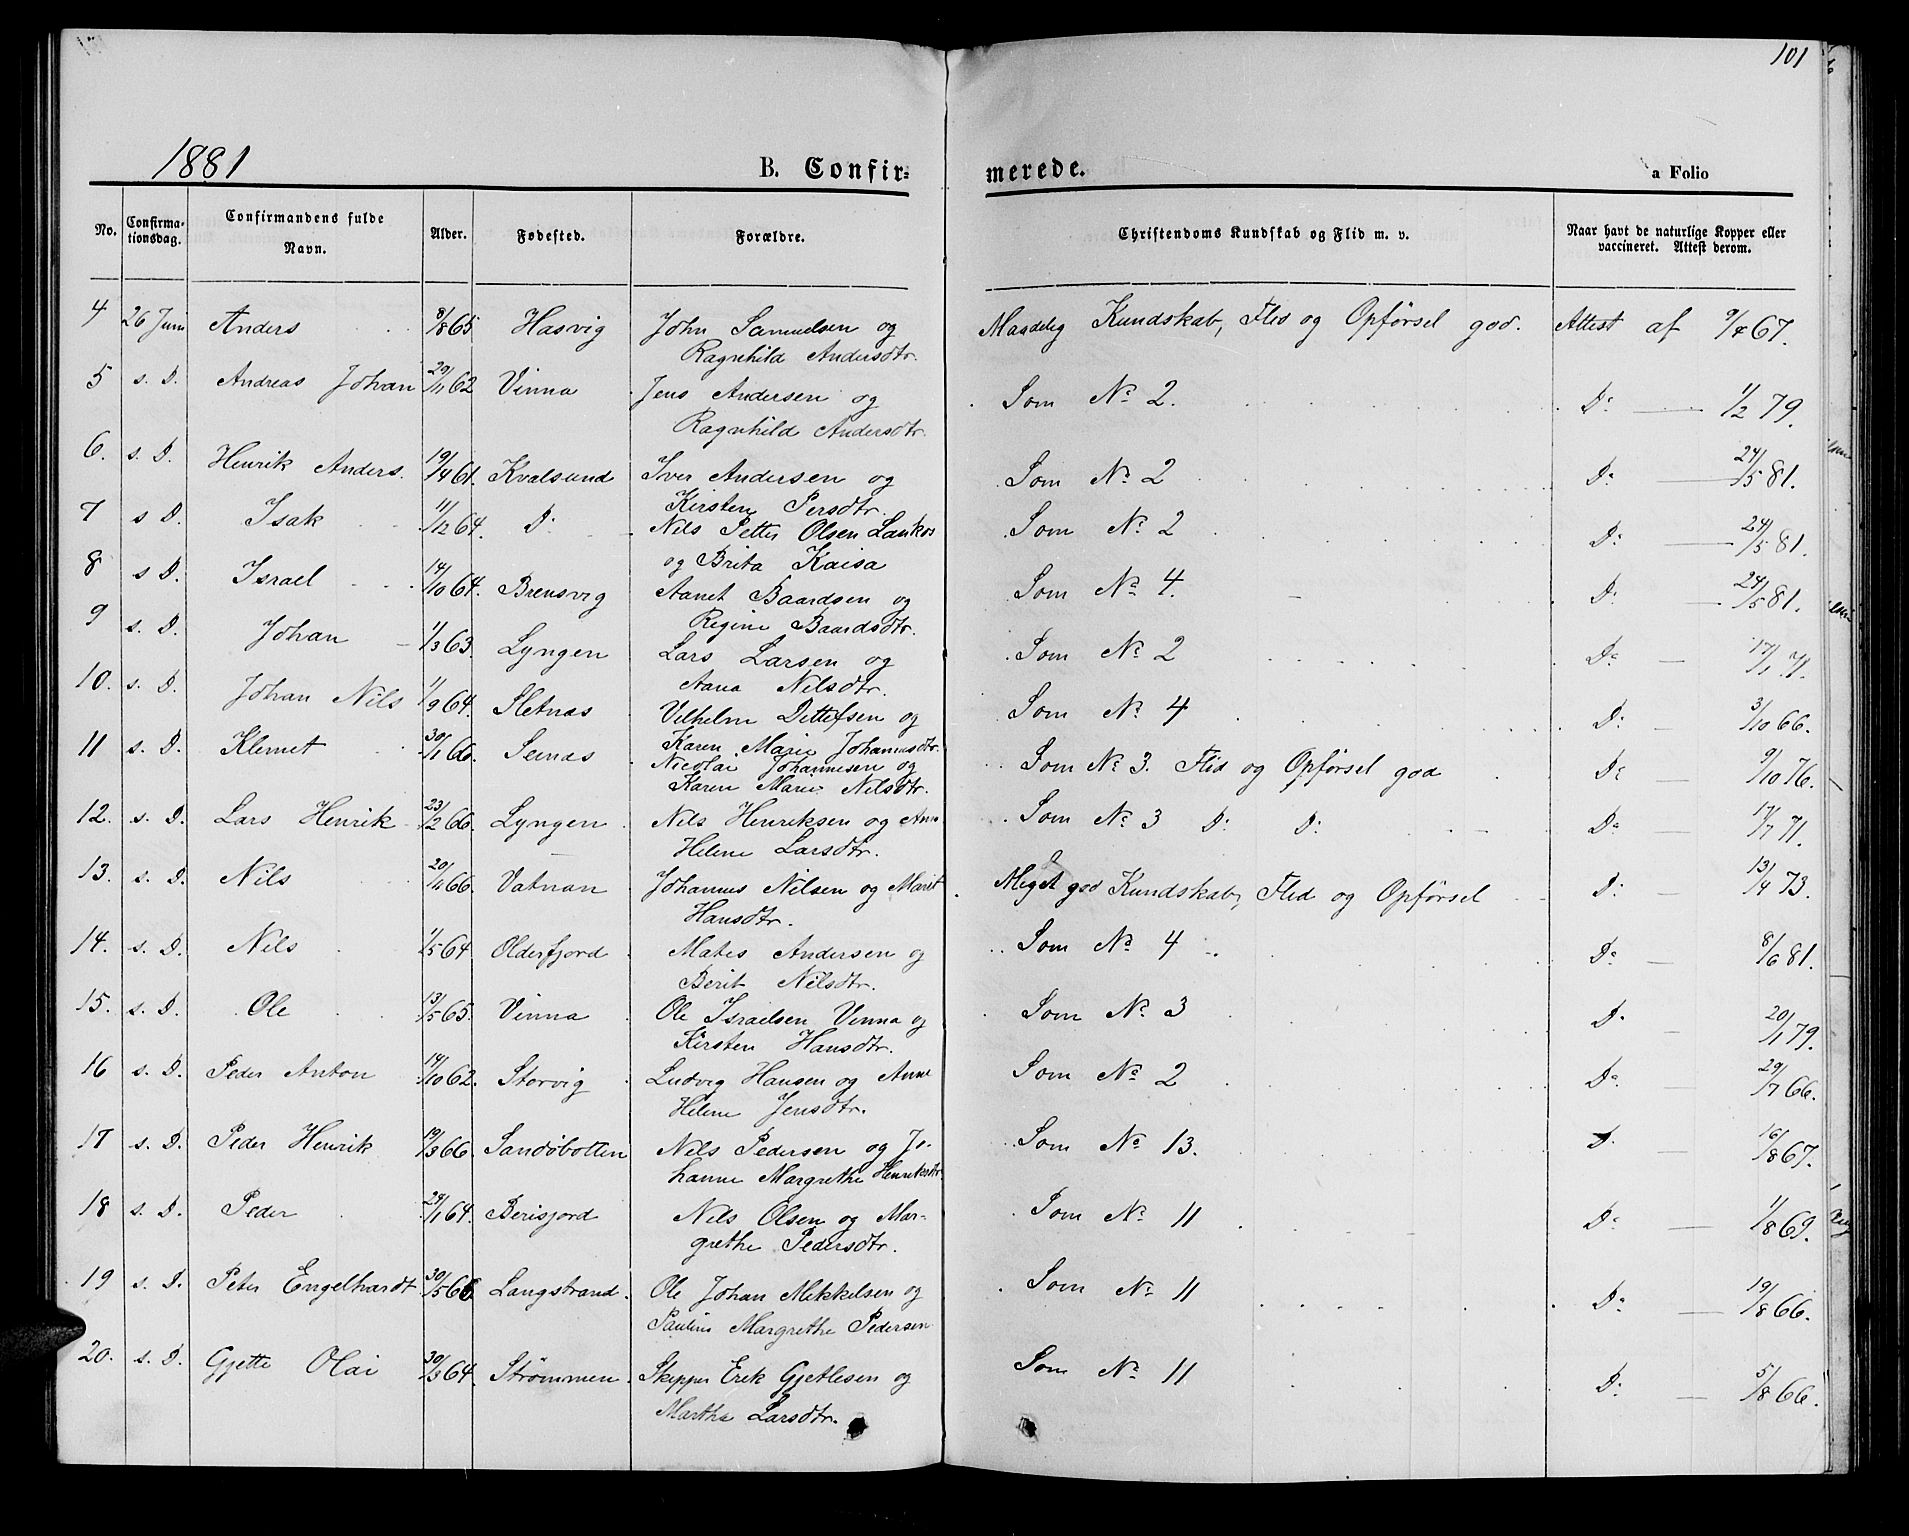 101
1881
B. Confir-
merede.
a Folio
No.
Confirma-
tionsdag.
Confirmandens fulde
Navn.
Alder.
Fødested.
Forældre.
Christendoms Kundskab og Flid m. v.
Naar havt de naturlige Kopper eller
vaccineret. Attest derom.
4 26 Juni Anders 8/8 65 Hasvig John Samuelsen og Maadelig Kundskab, Flid og Opførsel god. Attest af 9/4 67.
Ragnhild Andersdtr.
5 s. D. Andreas Johan 29/11 62 Vinna Jens Andersen og Som No 2. Do 1/2 79.
Ragnhild Andersdtr.
6. s. D. Henrik Anders. 19/4 61. Kvalsund Iver Andersen og Som No 2 Do 24/5 81.
Kirsten Persdtr.
7 s D. Isak 11/12 64. Do Nils Petter Olsen Lankos Som No 2 Do 24/5 81.
og Brita Kaisa
8 s D. Israel 14/10 64. Brensvig Aanet Baardsen og Som No 4. Do 24/5 81.
Regine Baardsdtr.
9 s. D. Johan 1/3 63. Lyngen Lars Larsen og Som No 2 Do 17/7 71.
Aana Nilsdtr.
10. s. D. Johan Nils 1/9 64. Sletnæs Vilhelm Dittefsen og Som No 4 Do 3/10 66.
Karen Marie Johannesdtr.
11 s. D. Klemet 30/1 66. Seinæs Nicolai Johannesen og Som No 3. Flid og Opførsel god Do 9/10 76.
Karen Marie Nilsdtr.
12. s. D. Lars Henrik 23/2 66. Lyngen Nils Henriksen og Ane Som No 3 Do Do Do 17/7 71.
Helene Larsdtr.
13. s. D. Nils 20/4 66. Vatnan Johannes Nilsen og Marit Meget god Kundskab, Flid og Opførsel Do 13/4 73.
Hansdtr.
14. s. D. Nils 1/5 64 Olderfjord Mates Andersen og Som No 4 Do 8/6 81.
Berit Nilsdtr.
15. s. D. Ole 13/5 65. Vinna Ole Israelsen Vinna og Som No 3 Do 20/1 79.
Kirsten Hansdtr.
16 s. D. Peder Anton 14/10 62. Storvig Ludvig Hansen og Anne Som No 2 Do 29/7 66.
Helene Jensdtr.
17 s. D. Peder Henrik 19/3 66. Sandøbotten Nils Pedersen og Jo- Som No 13. D. 16/8 67.
hanne Margrethe Henriksdtr.
18 s. D. Peder 29/1 64. Berisfjord Nils Olsen og Mar- Som No 11 Do 1/8 69.
grethe Pedersdtr.
19 s. D. Peter Engelhardt 30/5 66 Langstrand. Ole Johan Mikkelsen og Som No 11 Do 19/8 66.
Pauline Margrethe Pedersen
20. s. D. Gjette Olai 30/3 64. Strømmen. Skipper Erik Gjetlesen og Som No 11 Do 5/8 66.
Martha Larsdtr.